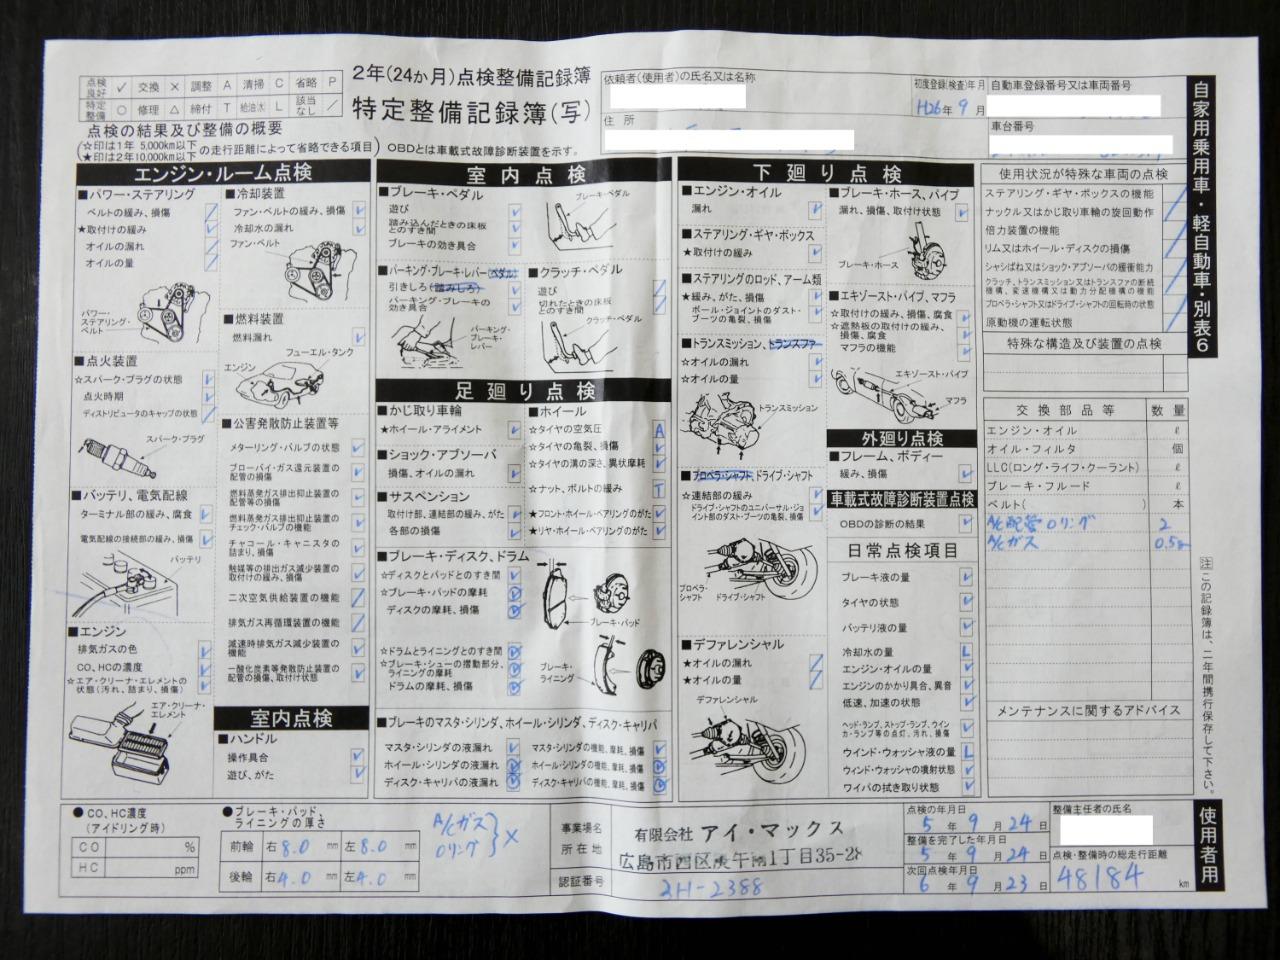 点検良好 ✓ 交換 × 調整 A 清掃 C 省略 P
特定整備 ○ 修理 △ 締付 T 給油(水) L 該当なし ／
点検の結果及び整備の概要
(☆印は1年 5,000km以下
★印は2年10,000km以下 の走行距離によって省略できる項目)
2年(24か月)点検整備記録簿
特定整備記録簿(写)
OBDとは車載式故障診断装置を示す。
依頼者(使用者)の氏名又は名称
住所
初度登録(検査)年月
H26年 9月
自動車登録番号又は車両番号
車台番号
自家用乗用車・軽自動車・別表6
エンジン・ルーム点検
■パワー・ステアリング
ベルトの緩み、損傷 ／
★取付けの緩み ✓
オイルの漏れ ／
オイルの量 ／
パワー・ステアリング・ベルト
■点火装置
☆スパーク・プラグの状態 ✓
点火時期 ✓
ディストリビュータのキャップの状態 ／
スパーク・プラグ
■バッテリ、電気配線
ターミナル部の緩み、腐食 ✓
電気配線の接続部の緩み、損傷 ✓
バッテリ
■エンジン
排気ガスの色 ✓
CO、HCの濃度 ✓
☆エア・クリーナ・エレメントの状態(汚れ、詰まり、損傷) ✓
エア・クリーナ・エレメント
■冷却装置
ファン・ベルトの緩み、損傷 ✓
冷却水の漏れ ✓
ファン・ベルト
■燃料装置
燃料漏れ ✓
フューエル・タンク
エンジン
■公害発散防止装置等
メターリング・バルブの状態 ✓
ブローバイ・ガス還元装置の配管の損傷 ✓
燃料蒸発ガス排出抑止装置の配管等の損傷 ✓
燃料蒸発ガス排出抑止装置のチェック・バルブの機能 ✓
チャコール・キャニスタの詰まり、損傷 ✓
触媒等の排出ガス減少装置の取付けの緩み、損傷 ✓
二次空気供給装置の機能 ／
排気ガス再循環装置の機能 ／
減速時排気ガス減少装置の機能 ✓
一酸化炭素等発散防止装置の配管の損傷、取付け状態 ✓
室内点検
■ハンドル
操作具合 ✓
遊び、がた ✓
室内点検
■ブレーキ・ペダル
遊び ✓
踏み込んだときの床板とのすき間 ✓
ブレーキの効き具合 ✓
ブレーキ・ペダル
■パーキング・ブレーキ・レバー(ペダル)
引きしろ(踏みしろ) ✓
パーキング・ブレーキの効き具合 ✓
パーキング・ブレーキ・レバー
■クラッチ・ペダル
遊び ／
切れたときの床板とのすき間 ／
クラッチ・ペダル
足廻り点検
■かじ取り車輪
★ホイール・アライメント ✓
■ショック・アブソーバ
損傷、オイルの漏れ ✓
■サスペンション
取付部、連結部の緩み、がた ✓
各部の損傷 ✓
■ホイール
☆タイヤの空気圧 A
☆タイヤの亀裂、損傷 ✓
☆タイヤの溝の深さ、異状摩耗 ✓
☆ナット、ボルトの緩み T
★フロント・ホイール・ベアリングのがた ✓
★リヤ・ホイール・ベアリングのがた ✓
■ブレーキ・ディスク、ドラム
☆ディスクとパッドとのすき間
☆ブレーキ・パッドの摩耗
ディスクの摩耗、損傷
ブレーキ・パッド
☆ドラムとライニングとのすき間
☆ブレーキ・シューの摺動部分、ライニングの摩耗
ドラムの摩耗、損傷
ブレーキ・ライニング
■ブレーキのマスタ・シリンダ、ホイール・シリンダ、ディスク・キャリパ
マスタ・シリンダの液漏れ ✓ マスタ・シリンダの機能、摩耗、損傷 ✓
ホイール・シリンダの液漏れ ホイール・シリンダの機能、摩耗、損傷
ディスク・キャリパの液漏れ ディスク・キャリパの機能、摩耗、損傷
下廻り点検
■エンジン・オイル
漏れ ✓
■ステアリング・ギヤ・ボックス
★取付けの緩み ✓
■ステアリングのロッド、アーム類
★緩み、がた、損傷 ✓
ボール・ジョイントのダスト・ブーツの亀裂、損傷 ✓
■トランスミッション、トランスファ
☆オイルの漏れ ✓
☆オイルの量 ✓
トランスミッション
■プロペラ・シャフト、ドライブ・シャフト
☆連結部の緩み ✓
ドライブ・シャフトのユニバーサル・ジョイント部のダスト・ブーツの亀裂、損傷 ✓
プロペラ・シャフト
ドライブ・シャフト
■デファレンシャル
★オイルの漏れ ／
★オイルの量 ／
デファレンシャル
■ブレーキ・ホース、パイプ
漏れ、損傷、取付け状態 ✓
ブレーキ・ホース
■エキゾースト・パイプ、マフラ
☆取付けの緩み、損傷、腐食 ✓
☆遮熱板の取付けの緩み、損傷、腐食 ✓
マフラの機能 ✓
エキゾースト・パイプ
マフラ
外廻り点検
■フレーム、ボディー
緩み、損傷 ✓
車載式故障診断装置点検
OBDの診断の結果 ✓
日常点検項目
ブレーキ液の量 ✓
タイヤの状態 ✓
バッテリ液の量 ✓
冷却水の量 L
エンジン・オイルの量 ✓
エンジンのかかり具合、異音 ✓
低速、加速の状態 ✓
ヘッド・ランプ、ストップ・ランプ、ウインカ・ランプ等の点灯、汚れ、損傷 ✓
ウインド・ウォッシャ液の量 L
ウィンド・ウォッシャの噴射状態 ✓
ワイパの拭き取り状態 ✓
使用状況が特殊な車両の点検
ステアリング・ギヤ・ボックスの機能
ナックル又はかじ取り車輪の旋回動作
倍力装置の機能
リム又はホイール・ディスクの損傷
シャシばね又はショック・アブソーバの緩衝能力
クラッチ、トランスミッション又はトランスファの断続機構、変速機構又は動力分配機構の機能
プロペラ・シャフト又はドライブ・シャフトの回転時の状態
原動機の運転状態
特殊な構造及び装置の点検
交換部品等 数量
エンジン・オイル ℓ
オイル・フィルタ 個
LLC(ロング・ライフ・クーラント) ℓ
ブレーキ・フルード ℓ
ベルト( ) 本
A/C配管Oリング 2
A/Cガス
メンテナンスに関するアドバイス
注 この記録簿は、二年間携行保存して下さい。
使用者用
●CO、HC濃度
(アイドリング時)
CO %
HC ppm
●ブレーキ・パッド、ライニングの厚さ
前輪 右 8.0 mm 左 8.0 mm
後輪 右 4.0 mm 左 4.0 mm
A/Cガス
Oリング } ×
事業場名
所在地
有限会社 アイ・マックス
広島市西区庚午南1丁目35-28
認証番号
2H-2388
点検の年月日
5年 9月 24日
整備を完了した年月日
5年 9月 24日
次回点検年月日
6年 9月 23日
整備主任者の氏名
点検・整備時の総走行距離
48184 km